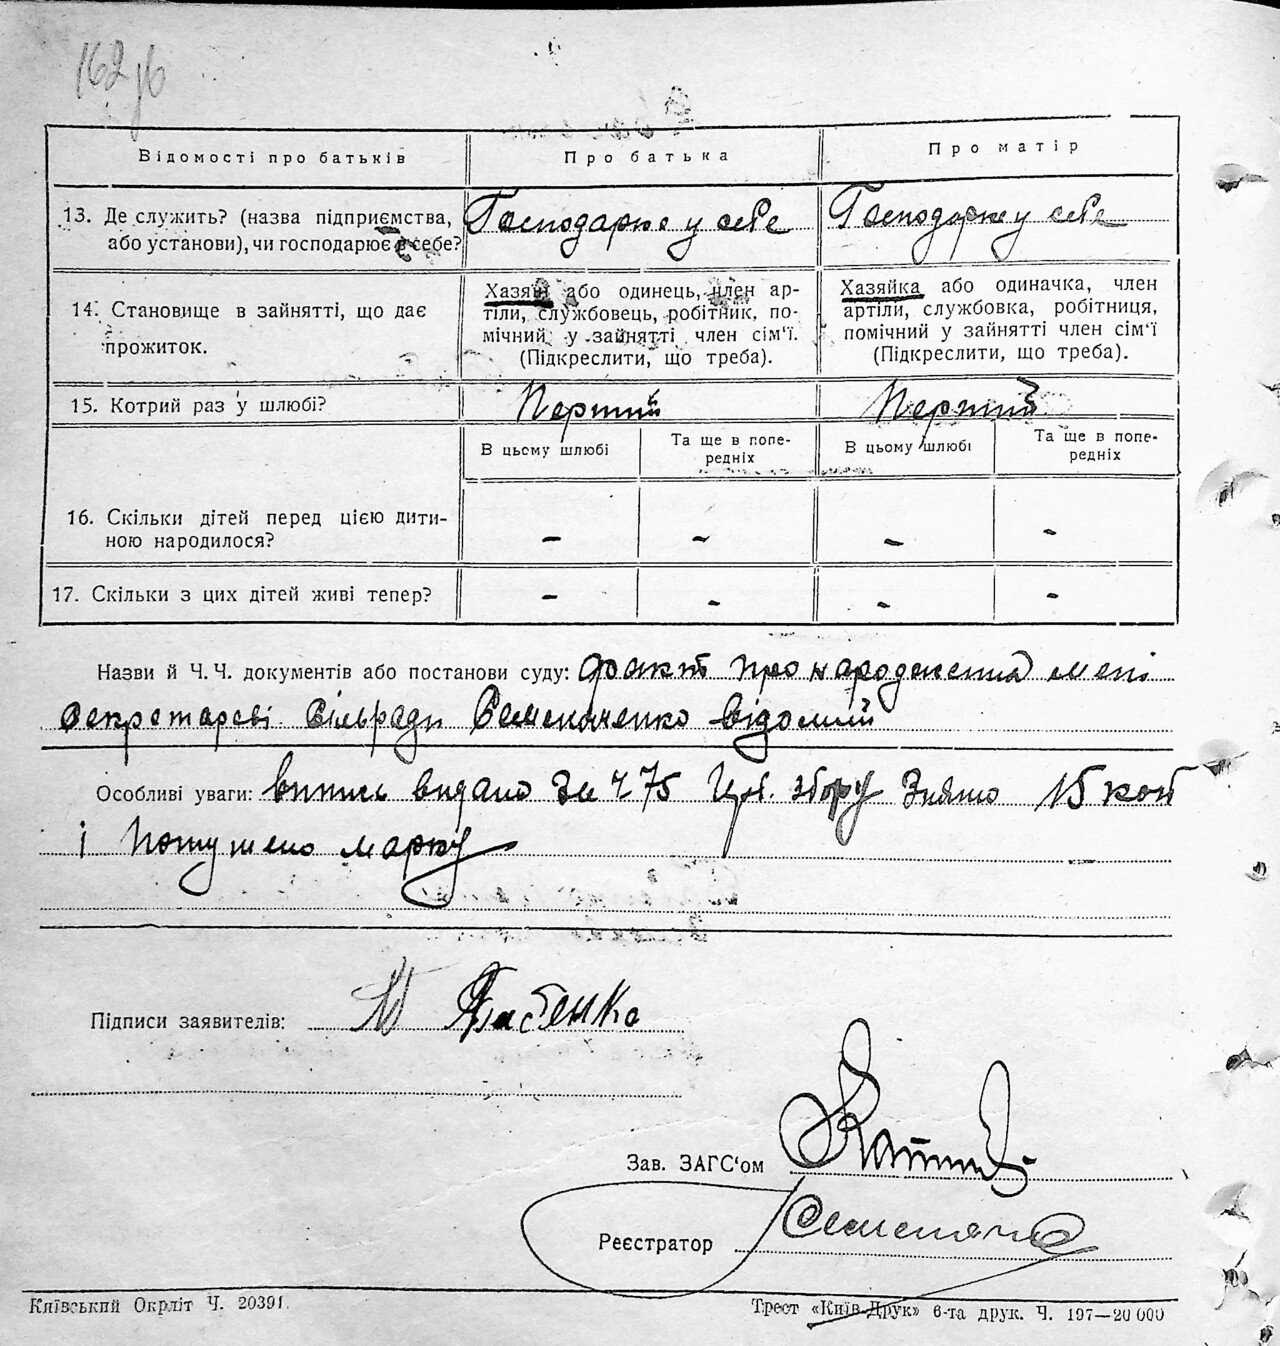 162 зв
Відомості про батьків
Про батька
Про матір
13. Де служить? (назва підприємства,
або установи), чи господарює в себе?
Господарює у себе
Господарює у себе
14. Становище в зайнятті, що дає
прожиток.
Хазяїн або одинець, член ар-
тіли, службовець, робітник, по-
мічний у зайнятті член сім'ї.
(Підкреслити, що треба).
Хазяйка або одиначка, член
артіли, службовка, робітниця,
помічний у зайнятті член сім'ї
(Підкреслити, що треба).
15. Котрий раз у шлюбі?
Перший
Перший
В цьому шлюбі
Та ще в попе-
редніх
В цьому шлюбі
Та ще в попе-
редніх
16. Скільки дітей перед цією дити-
ною народилося?
– – – –
17. Скільки з цих дітей живі тепер?
– – – –
Назви й Ч. Ч. документів або постанови суду: факт про народження мені
секретареві сільради Семеняченко відомий
Особливі уваги: випись видано за Ч 75 збору знято 15 коп
і погушено марку
Підписи заявителів:
Зав. ЗАГС'ом
Реєстратор
Київський Окрліт Ч. 20391.
Трест «Київ-Друк» 6-та друк. Ч. 197—20 000